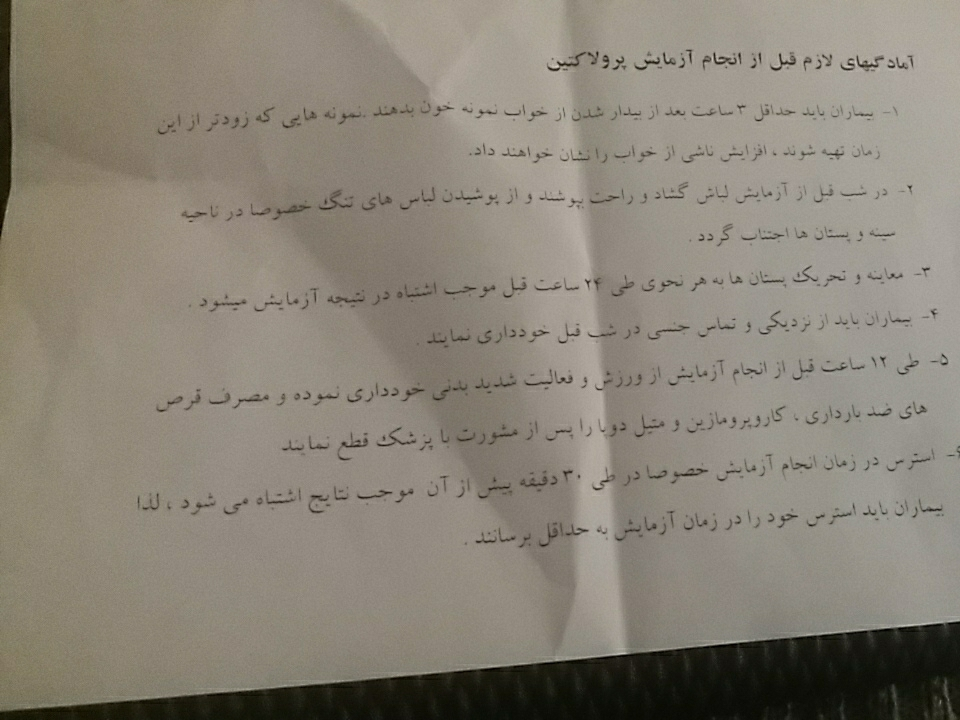 آمادگیهای لازم قبل از انجام آزمایش پرولاکتین
۱- بیماران باید حداقل ۳ ساعت بعد از بیدار شدن از خواب نمونه خون بدهند .نمونه هایی که زودتر از این
زمان تهیه شوند ، افزایش ناشی از خواب را نشان خواهند داد.
۲- در شب قبل از آزمایش لباش گشاد و راحت بپوشند و از پوشیدن لباس های تنگ خصوصا در ناحیه
سینه و پستان ها اجتناب گردد .
۳- معاینه و تحریک پستان ها به هر نحوی طی ۲۴ ساعت قبل موجب اشتباه در نتیجه آزمایش میشود .
۴- بیماران باید از نزدیکی و تماس جنسی در شب قبل خودداری نمایند .
۵- طی ۱۲ ساعت قبل از انجام آزمایش از ورزش و فعالیت شدید بدنی خودداری نموده و مصرف قرص
های ضد بارداری ، کاروپرومازین و متیل دوپا را پس از مشورت با پزشک قطع نمایند
۶- استرس در زمان انجام آزمایش خصوصا در طی ۳۰ دقیقه پیش از آن موجب نتایج اشتباه می شود ، لذا
بیماران باید استرس خود را در زمان آزمایش به حداقل برسانند .